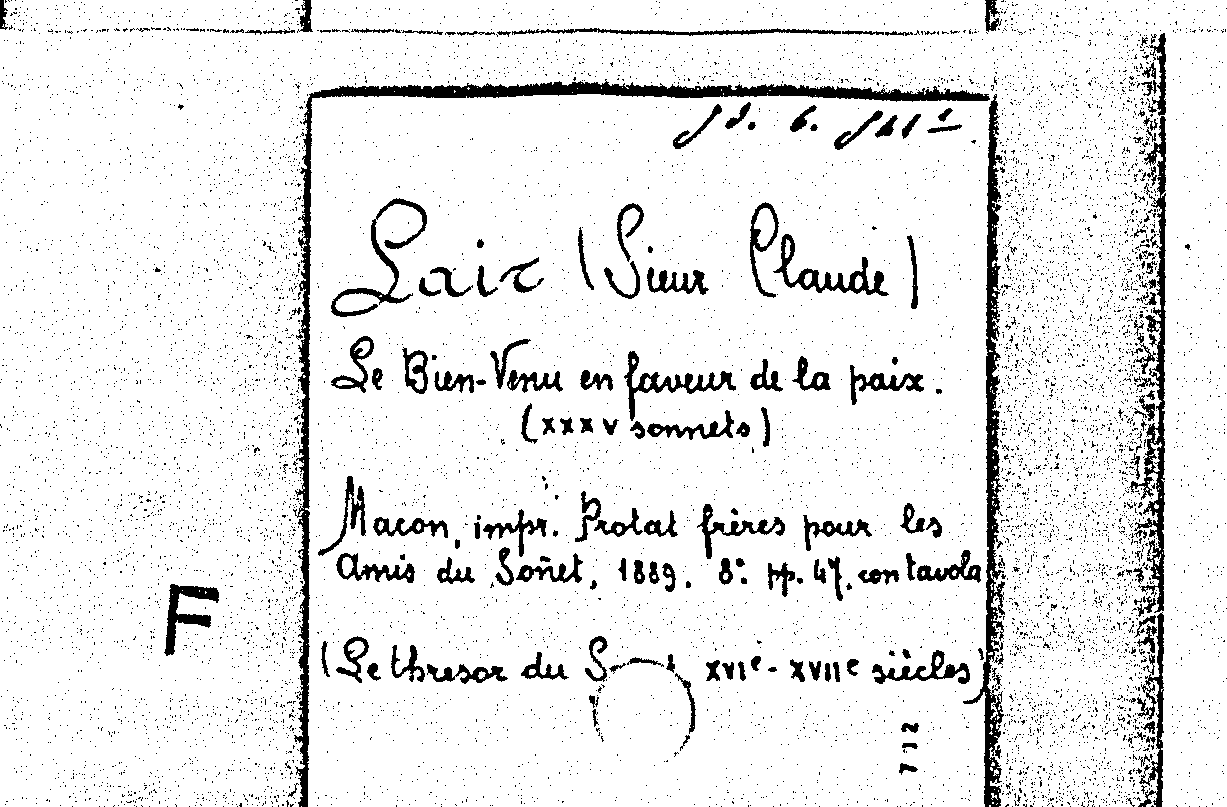 Lair (Sieur Claude)
Le Bien-Venu en faveur de la paix.
(XXXV sonnets)
Macon, impr. Protat frères pour les
Amis du Soñet, 1889. 8°. pp. 47. con tavola
(Le thresor du XVIe - XVIIe siècles)
F
712